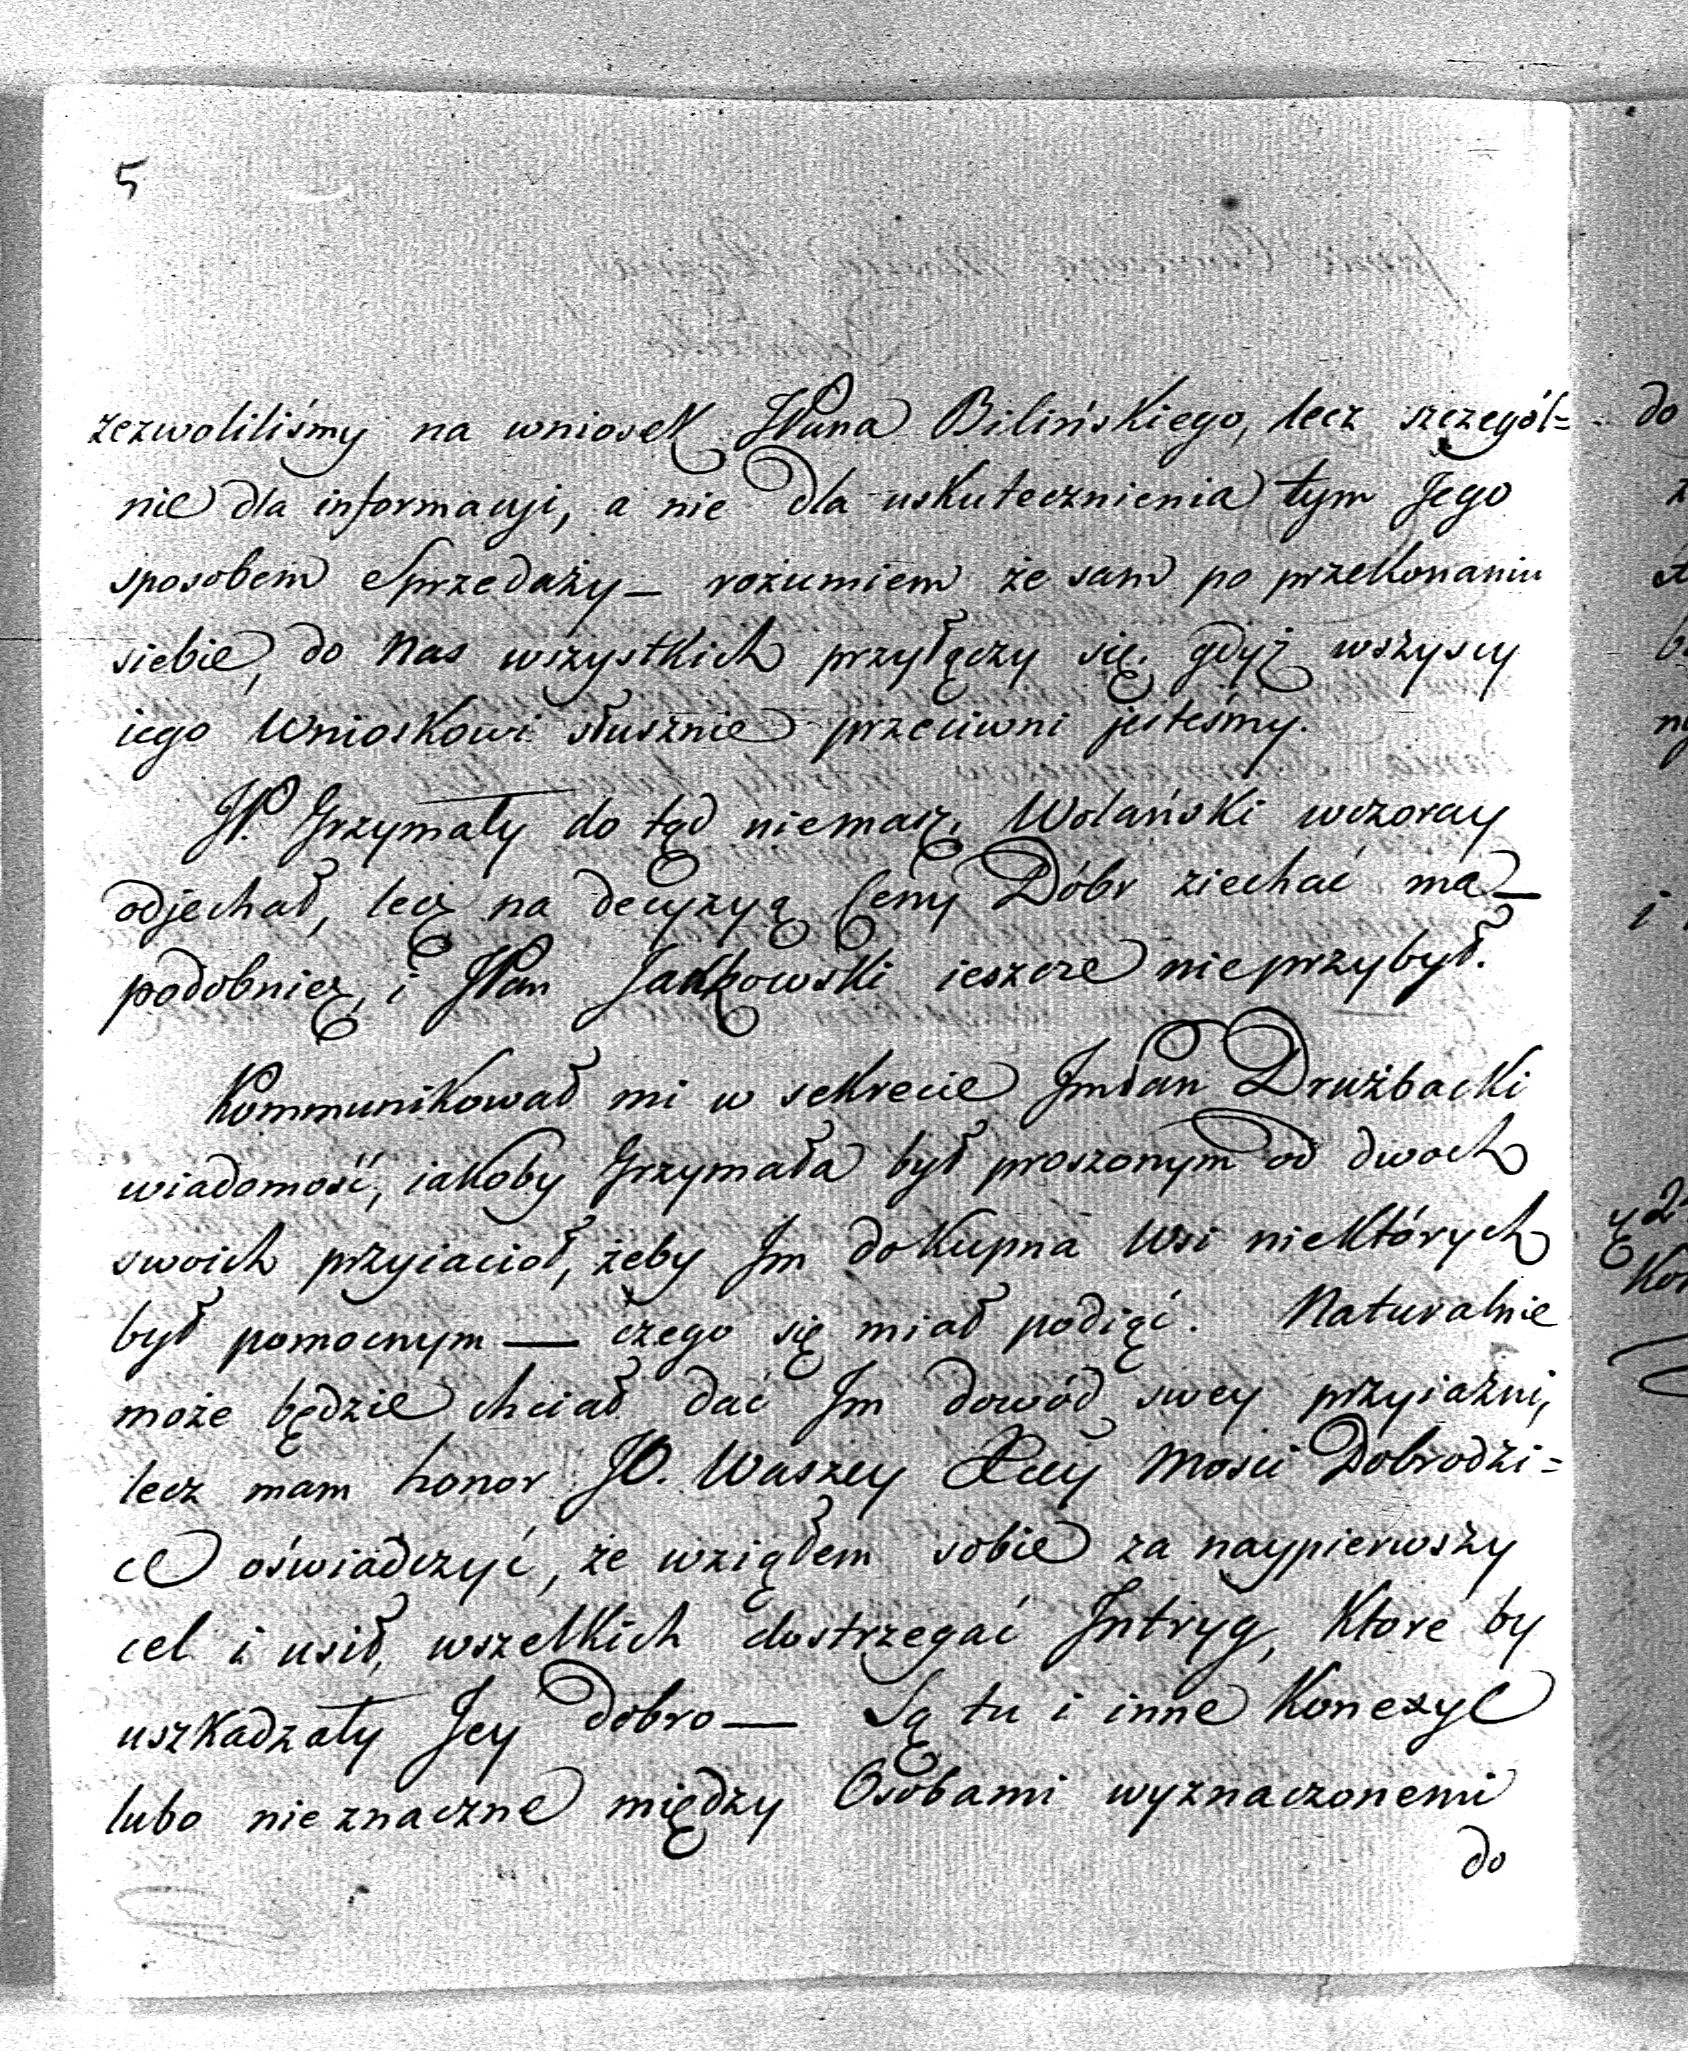 5
zezwoliliśmy na wniosek JPana Bilińskiego, lecz szczegól=
nie dla informacyi, a nie dla uskutecznienia tym Jego
sposobem Sprzedaży — rozumiem że sam po przekonaniu
siebie, do nas wszystkich przyłączy się, gdyż wszyscy
iego Wnioskowi słusznie przeciwni jesteśmy.
JP. Grzymały do tąd niemasz, Wolański wczoray
odjechał, lecz na decyzyą Ceny Dóbr ziechać ma —
podobnież, i JPan Jankowski ieszcze nieprzybył.
Kommunikował mi w sekrecie JmPan Drużbacki
wiadomość, iakoby Grzymała był proszonym od dwoch
swoich przyiacioł, żeby Jm do Kupna Wsi niektórych
był pomocnym — czego się miał podiąć. Naturalnie
może będzie chciał dać Jm dowód swey przyiaźni,
lecz mam honor JO. Waszey Xcey Mości Dobrodzi=
ce oświadczyć, że wziąłem sobie za naypierwszy
cel i usił, wszelkich dostrzegać Intryg, Ktore by
uszkadzały Jey dobro — Są tu i inne Konexye
lubo nieznaczne między Osobami wyznaczonemi
do